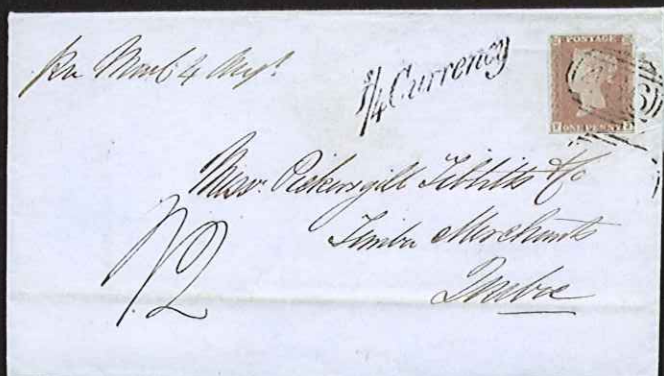 per Mail 4 Augt
1/4 Currency
POSTAGE
ONE PENNY
Messrs. Pickersgill Tibbitts & Co
Timber Merchants
1/2
Quebec